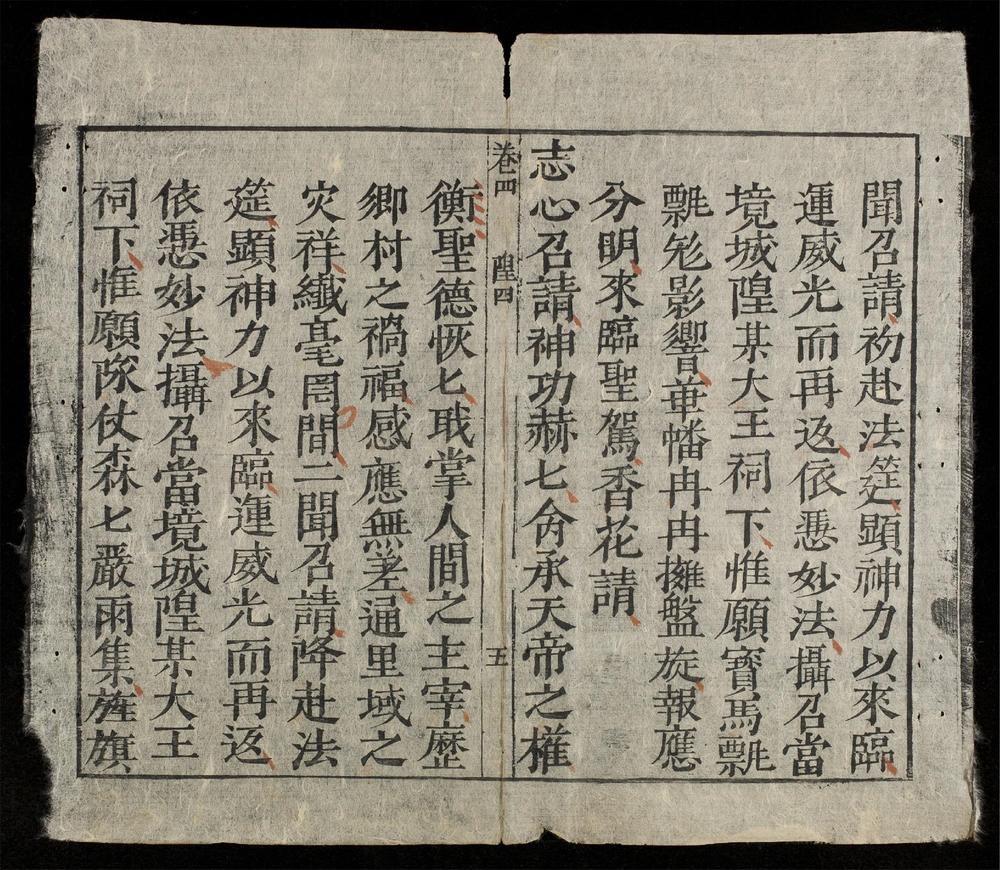 聞召請初赴法筵顯神力以來臨
運威光而再返依憑妙法攝召當
境城隍某大王祠下惟願寳馬飄
飄旂影響葷幡冉冉擁盤旋報應
分明來臨聖駕香花請
志心召請神功赫匕肏承天帝之權
卷四　隍四　五
衡聖德恢匕聀掌人間之主宰歴
鄉村之禍福感應無差通里域之
灾祥纎毫罔間二聞召請降赴法
筵顯神力以來臨運威光而再返
依憑妙法攝召當境城隍某大王
祠下惟願隊仗森匕嚴雨集旌旗